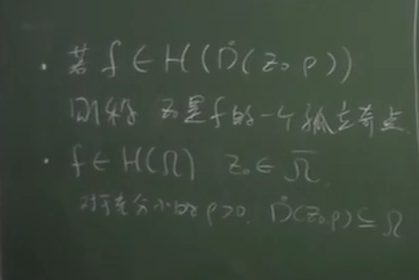 · 若 f ∈ H(Ḋ(z₀ ρ))
则称 z₀是f的一个孤立奇点
· f ∈ H(Ω) z₀ ∈ Ω̅
对于充分小的ρ>0, Ḋ(z₀,ρ) ⊆ Ω